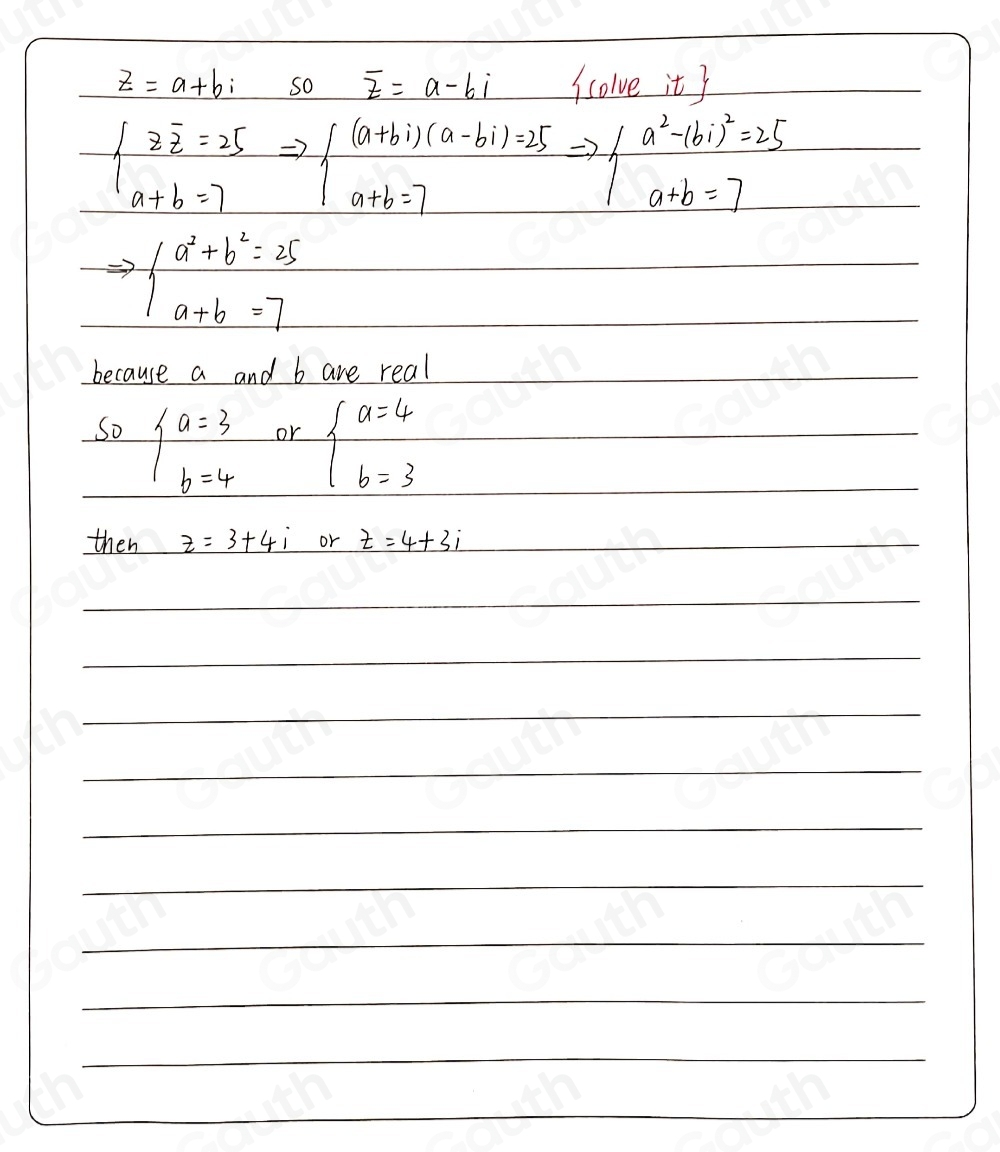 z = a+bi so z̄ = a-bi {solve it}
{ z z̄ = 25 ⇒ { (a+bi)(a-bi)=25 ⇒ { a²-(bi)²=25
a+b=7 a+b=7 a+b=7
⇒ { a²+b²=25
a+b =7
because a and b are real
So { a=3 or { a=4
b=4 b=3
then z=3+4i or z=4+3i
Gauth